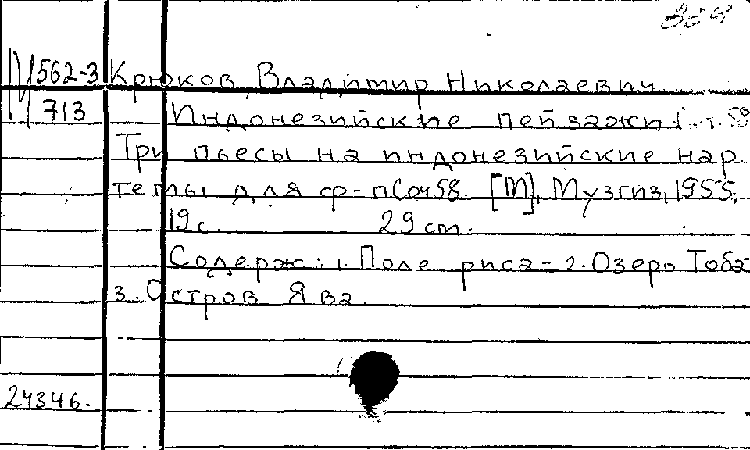 М 562-3 Крюков Владимир Николаевич
713 Индонезийские пейзажи
Три пьесы на индонезийские нар.
темы для ф-п Соч 58. [М], Музгиз, 1955.
19 с. 29 cm.
Содерж: 1. Поле риса - 2. Озеро Тоба
3. Остров Ява.
24346.